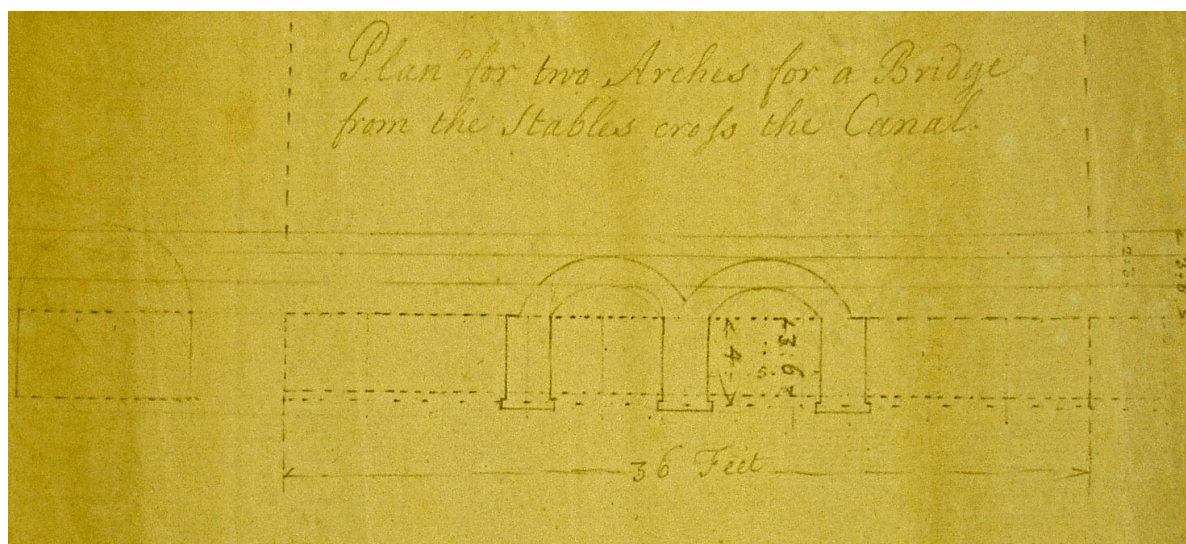 Plan for two Arches for a Bridge
from the Stables croſs the Canal.
2:3
3:6
4
3:6
5
36 Feet